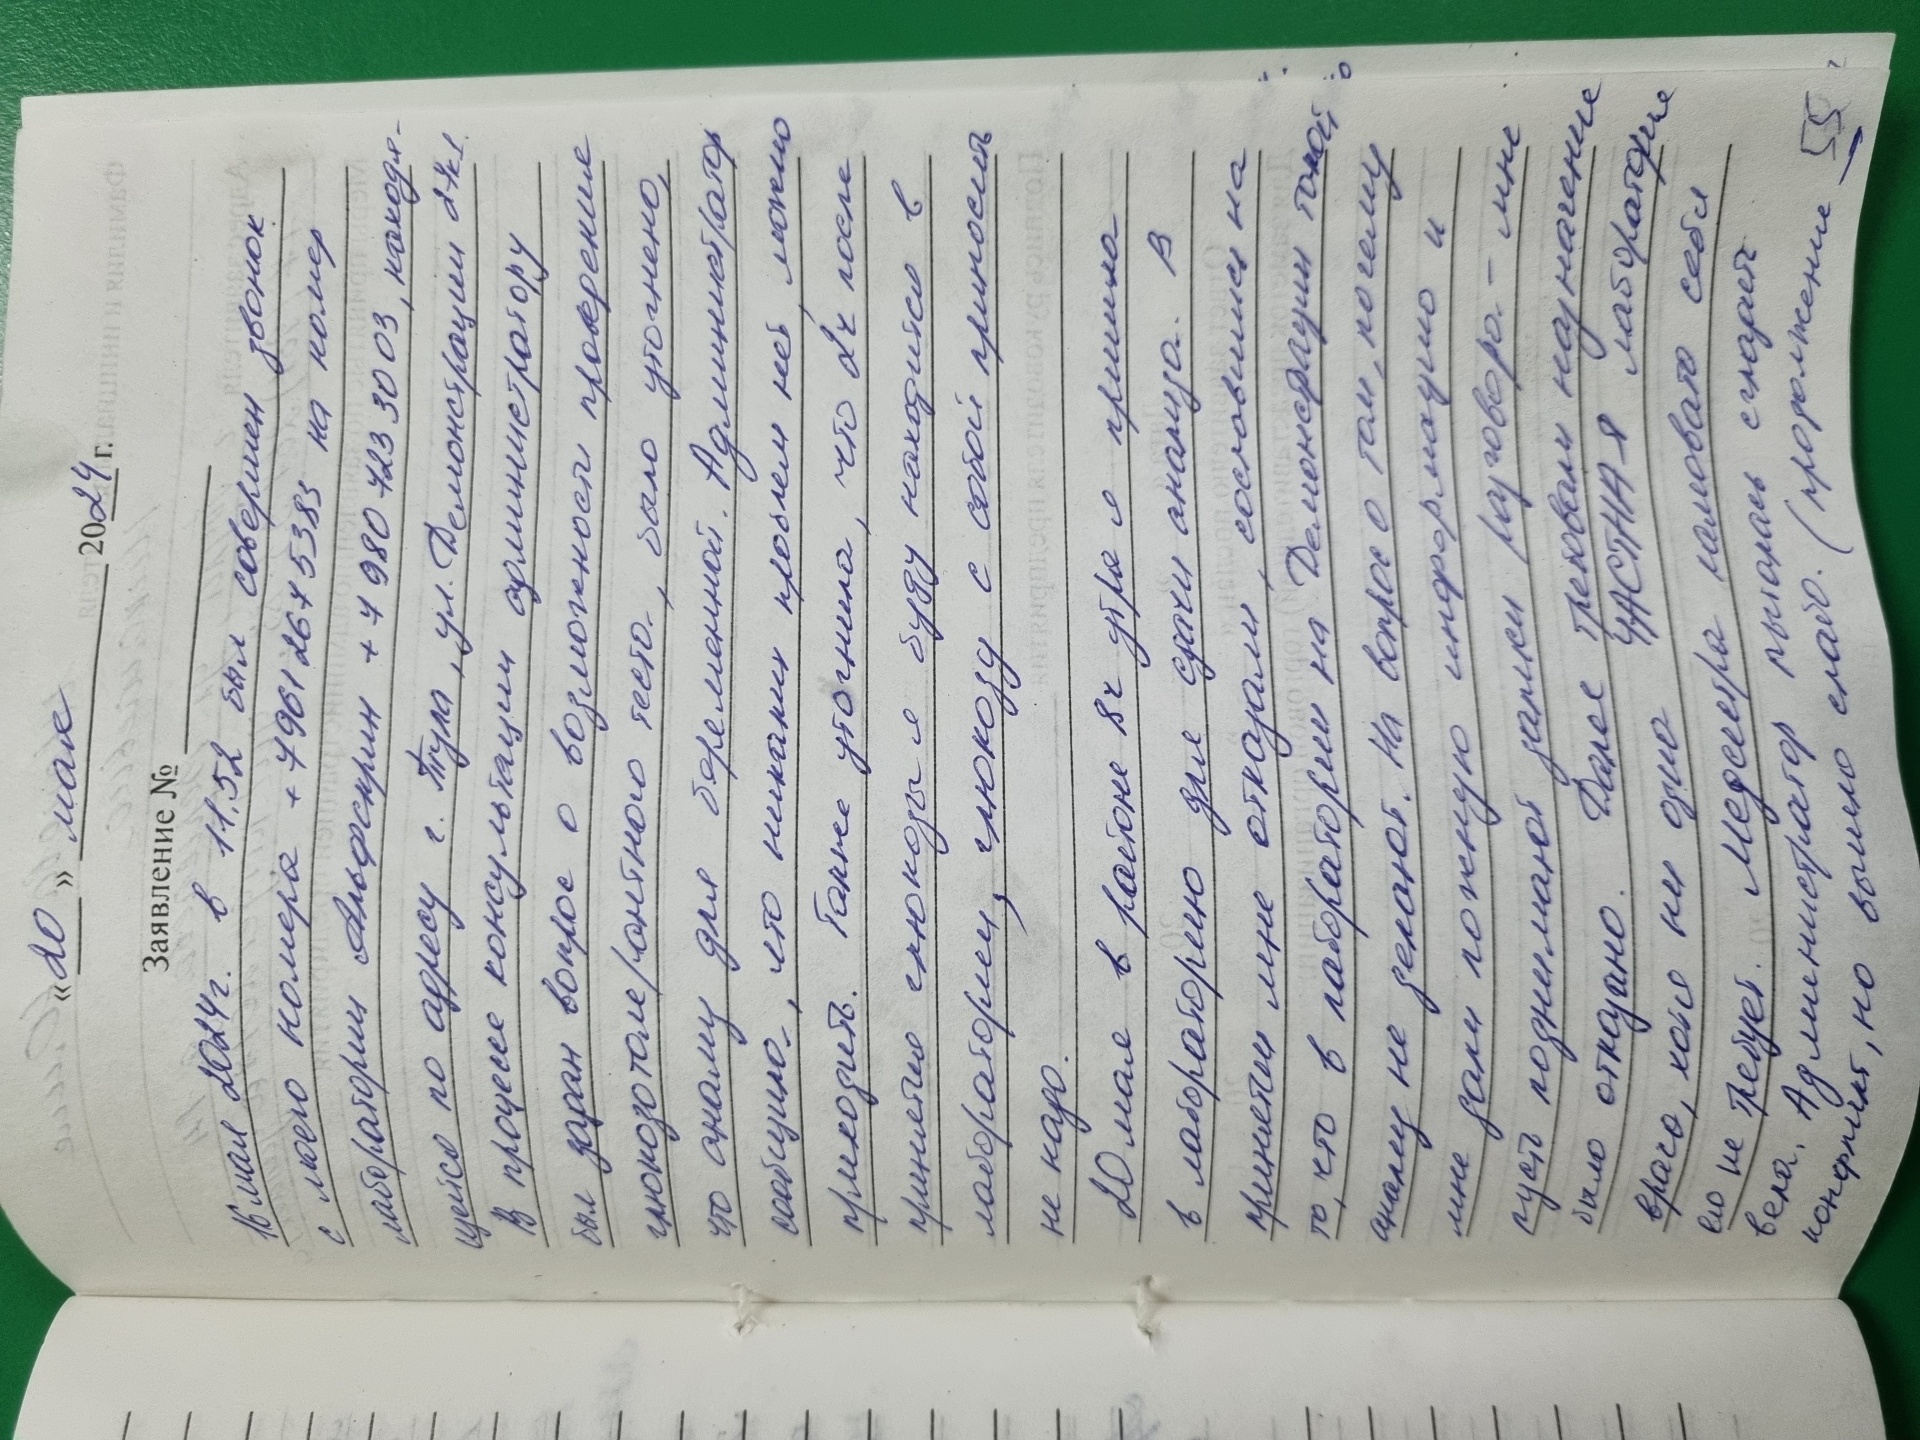 «20» мая 2024 г.
Заявление №
16 мая 2024г. в 11.52 был совершен звонок
с моего номера +7961 267 53 83 на номер
лаборатории Альфаскрин +7 980 723 30 03, находя-
щейся по адресу г. Тула, ул. Демонстрации 2 к 1.
В процессе консультации администратору
был задан вопрос о возможности проверение
глюкозотолерантного теста, было уточнено,
что анализ для беременной. Администратор
сообщила, что никаких проблем нет, можно
приходить. Также уточнила, что 2ч после
принятие глюкозы я буду находится в
лаборатории, глюкозу с собой приносить
не надо.
20 мая в районе 8ч утра я пришла
в лабораторию для сдачи анализа. В
принятии мне отказали, сославшись на
то, что в лаборатории на Демонстрации такой
анализ не делают. На вопрос о том, почему
мне дали ложную информацию и
пусть поднимают записи разговора - мне
было отказано. Далее требовали назначение
врача, хотя ни одна ЧАСТНАЯ лаборатория
его не требует. Медсестра хамовато себя
вела. Администратор пыталась сгладить
конфликт, но вышло слабо. (продолжение 55